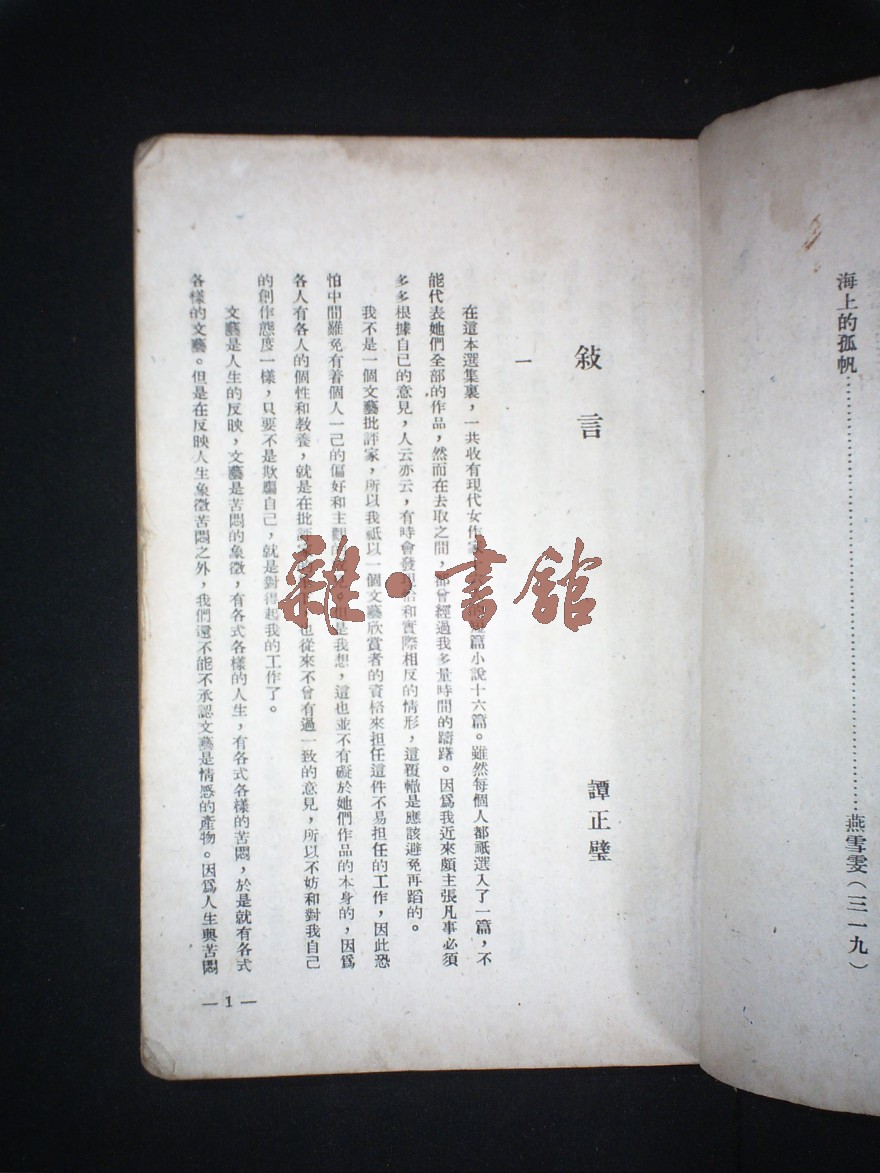 海上的孤帆……………………………………燕雪雯(三一九)
敍言
譚正璧
一
在這本選集裏,一共收有現代女作家篇小說十六篇。雖然每個人都祇選入了一篇,不
能代表她們全部的作品,然而在去取之間,都曾經過我多量時間的躊躇。因爲我近來頗主張凡事必須
多多根據自己的意見,人云亦云,有時會發現恰和實際相反的情形,這覆轍是應該避免再蹈的。
我不是一個文藝批評家,所以我祇以一個文藝欣賞者的資格來担任這件不易担任的工作,因此恐
怕中間難免有着個人一己的偏好和主觀的成見。但是我想,這也並不有礙於她們作品的本身的,因爲
各人有各人的個性和教養,就是在批評也從來不曾有過一致的意見,所以不妨和對我自己
的創作態度一樣,只要不是欺騙自己,就是對得起我的工作了。
文藝是人生的反映,文藝是苦悶的象徵,有各式各樣的人生,有各式各樣的苦悶,於是就有各式
各樣的文藝。但是在反映人生象徵苦悶之外,我們還不能不承認文藝是情感的產物。因爲人生與苦悶
— 1 —
雜·書舘